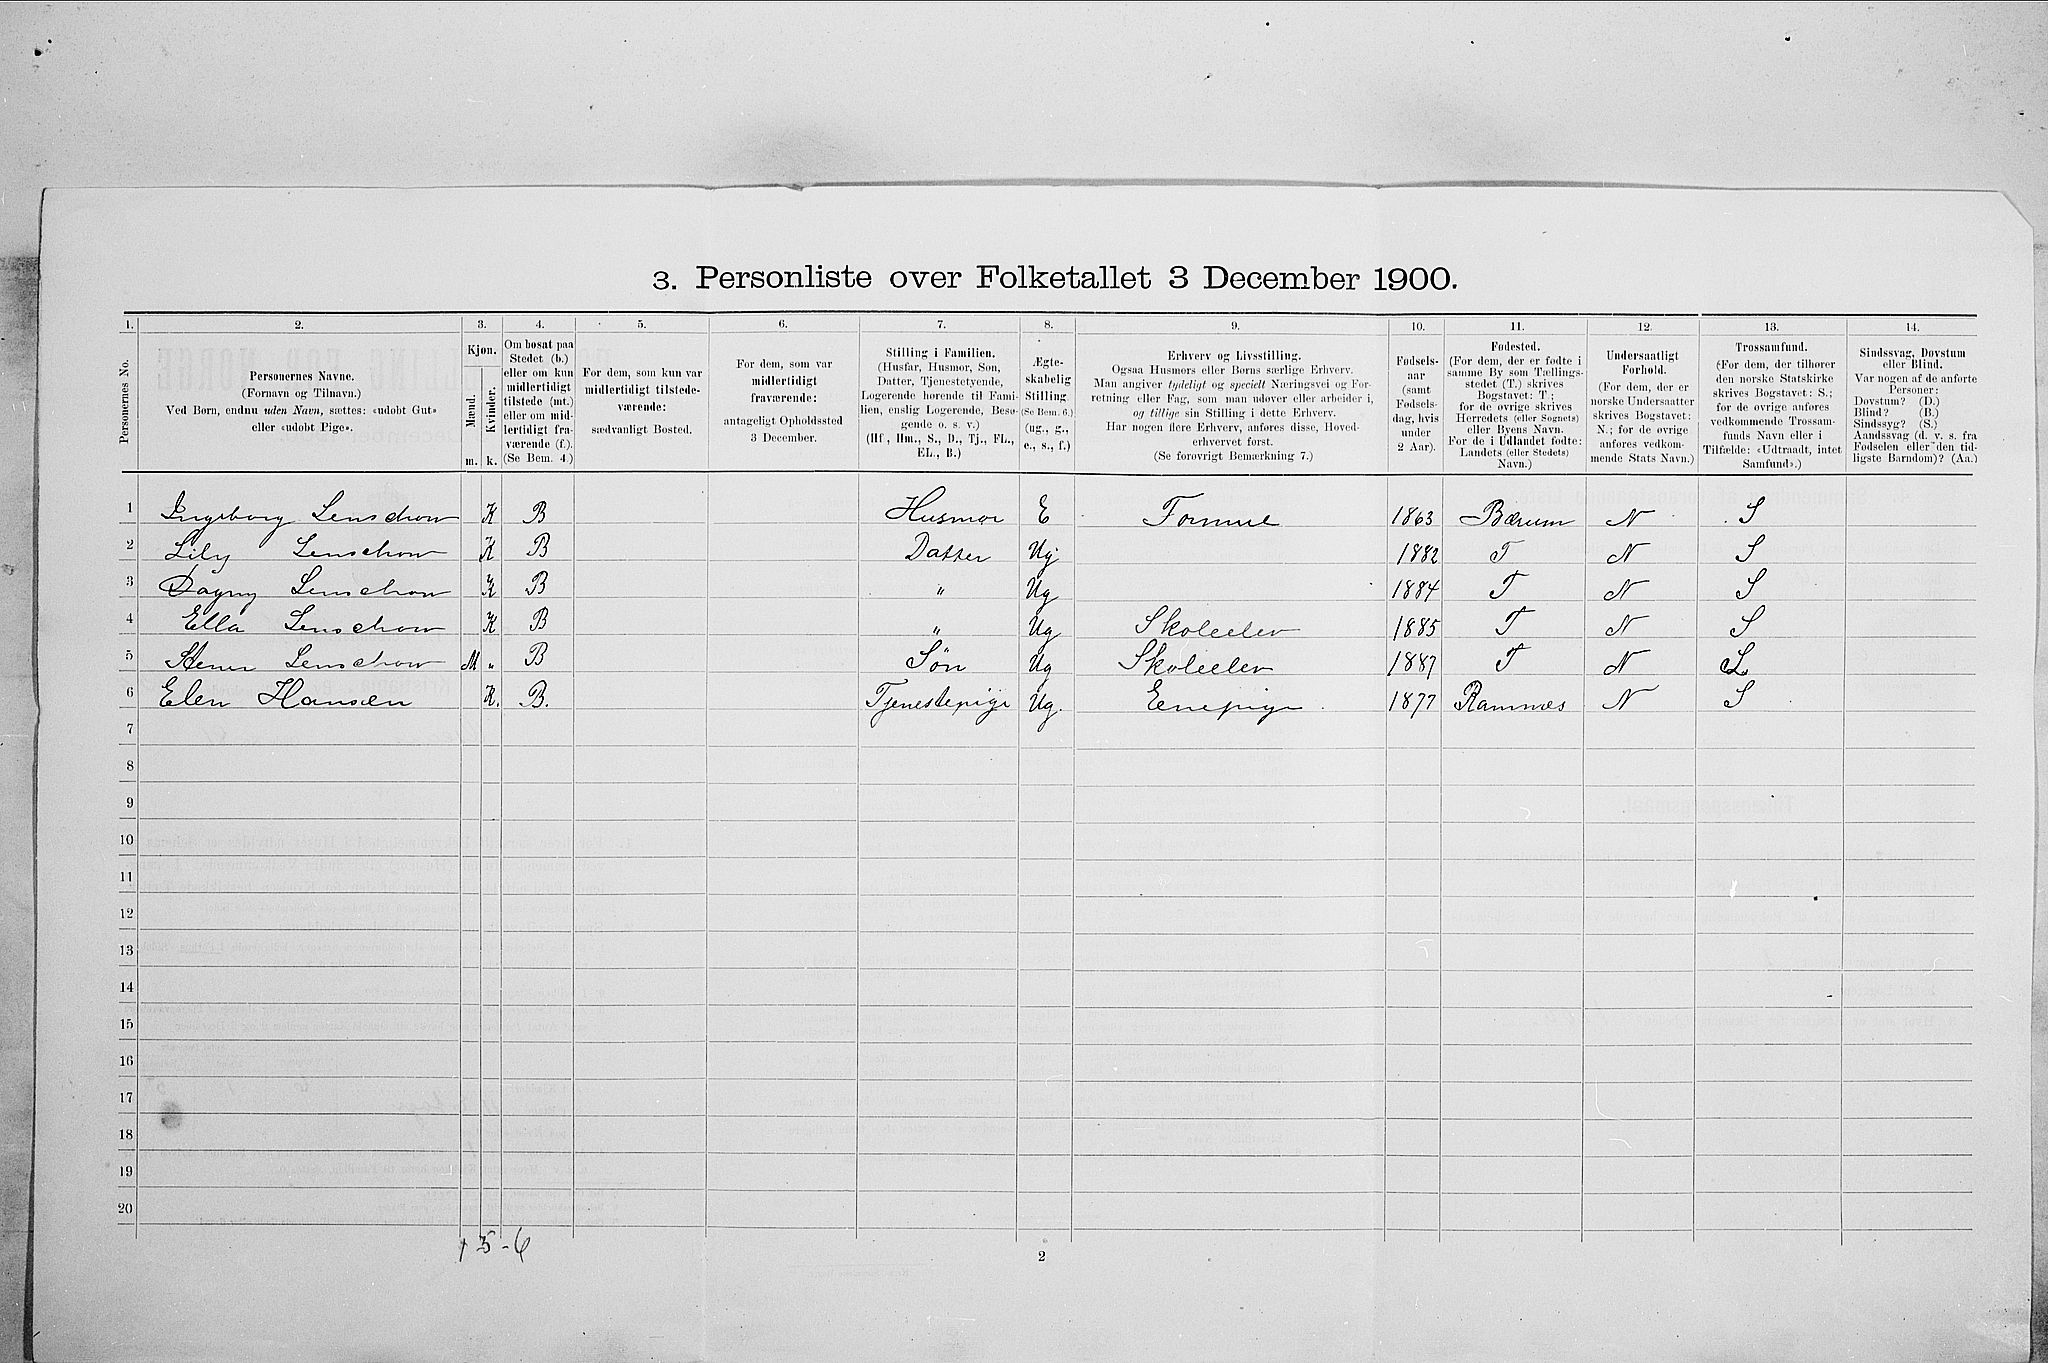 3. Personliste over Folketallet 3 December 1900.
1. 2. 3. 4. 5. 6. 7. 8. 9. 10. 11. 12. 13. 14.
Personernes No.
Personernes Navne.
(Fornavn og Tilnavn.)
Ved Børn, endnu uden Navn, sættes: «udobt Gut»
eller «udobt Pige».
Kjøn.
Mænd.
Kvinder.
m. k.
Om bosat paa
Stedet (b.)
eller om kun
midlertidigt
tilstede (mt.)
eller om mid-
lertidigt fra-
værende (f.).
(Se Bem. 4.)
For dem, som kun var
midlertidigt tilstede-
værende:
sædvanligt Bosted.
For dem, som var
midlertidigt
fraværende:
antageligt Opholdssted
3 December.
Stilling i Familien.
(Husfar, Husmor, Søn,
Datter, Tjenestetyende,
Logerende hørende til Fami-
lien, enslig Logerende, Besø-
gende o. s. v.)
(Hf., Hm., S., D., Tj., FL.,
EL., B.)
Ægte-
skabelig
Stilling.
(Se Bem. 6.)
(ug., g.,
e., s., f.)
Erhverv og Livsstilling.
Ogsaa Husmors eller Børns særlige Erhverv.
Man angiver tydeligt og specielt Næringsvei og For-
retning eller Fag, som man udøver eller arbeider i,
og tillige sin Stilling i dette Erhverv.
Har nogen flere Erhverv, anføres disse, Hoved-
erhvervet først.
(Se forøvrigt Bemærkning 7.)
Fødsels-
aar
(samt
Fødsels-
dag, hvis
under
2 Aar).
Fødested.
(For dem, der er fødte i
samme By som Tællings-
stedet (T.) skrives
Bogstavet: T.;
for de øvrige skrives
Herredets (eller Sognets)
eller Byens Navn.
For de i Udlandet fødte:
Landets (eller Stedets)
Navn.)
Undersaatligt
Forhold.
(For dem, der er
norske Undersaatter
skrives Bogstavet:
N.; for de øvrige
anføres vedkom-
mende Stats Navn.)
Trossamfund.
(For dem, der tilhører
den norske Statskirke
skrives Bogstavet: S.;
for de øvrige anføres
vedkommende Trossam-
funds Navn eller i
Tilfælde: «Udtraadt, intet
Samfund».)
Sindssvag, Døvstum
eller Blind.
Var nogen af de anførte
Personer:
Døvstum? (D.)
Blind? (B.)
Sindssyg? (S.)
Aandssvag (d. v. s. fra
Fødselen eller den tid-
ligste Barndom)? (Aa.)
1 Ingeborg Lenschow K B Husmor E Formue 1863 Bærum N S
2 Lily Lenschow K B Datter Ug. 1882 T N S
3 Dagny Lenschow K B " Ug 1884 T N S
4 Ella Lenschow K B " Ug Skoleelev 1885 T N S
5 Stener Lenschow M " B Søn Ug Skoleelev 1887 T N S
6 Elen Hansen K. B. Tjenestepige Ug. Enepige 1877 Ramnæs N S
7
8
9
10
11
12
13
14
15
16
17
18
19
20
1 5 - 6
2